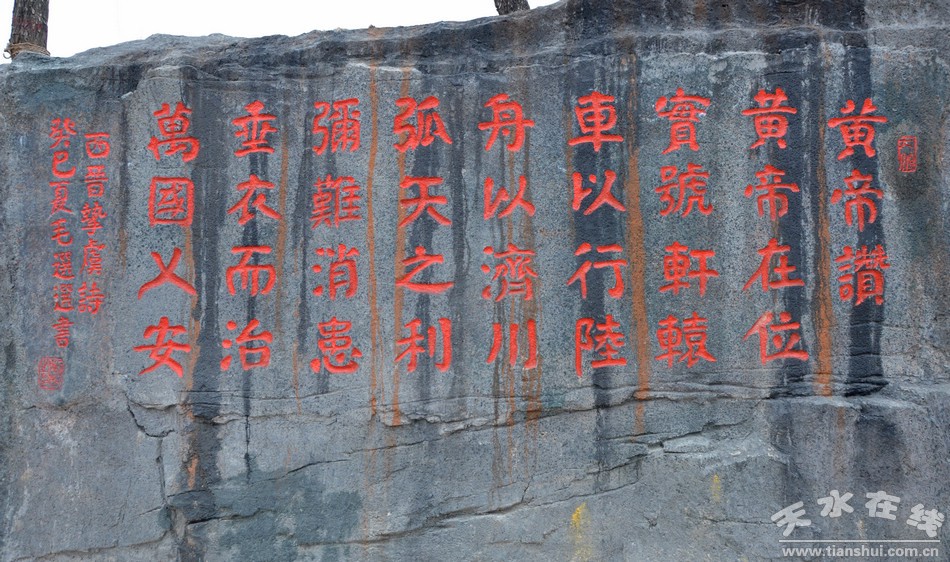 黃帝讚
黃帝在位
實號軒轅
車以行陸
舟以濟川
弧矢之利
彌難消患
垂衣而治
萬國乂安
西晉摯虞詩
癸巳夏毛選選書
天水在线
www.tianshui.com.cn